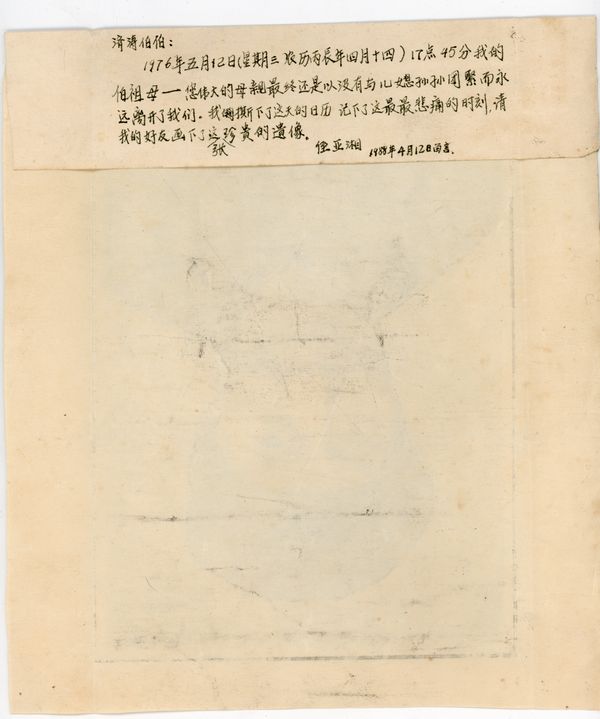 济涛伯伯：
1976年五月12日(星期三 农历丙辰年四月十四) 17点45分我的
伯祖母——您伟大的母亲最终还是以没有与儿媳孙孙团聚而永
远离开了我们。我撕下了这天的日历 记下了这最最悲痛的时刻，请
我的好友画下了这张珍贵的遗像。
侄亚湘 1988年4月12日留言.